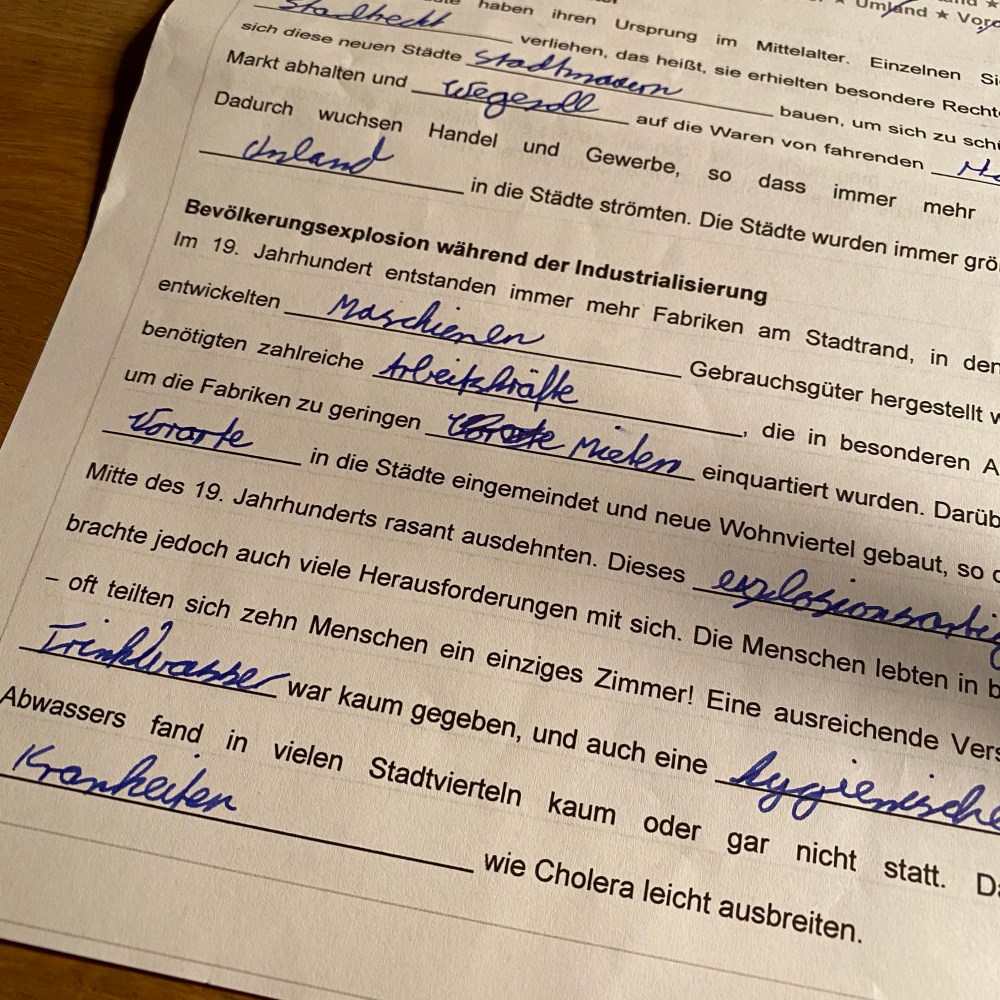 ★ Umland ★ Voro
Stadtrecht haben ihren Ursprung im Mittelalter. Einzelnen Si
verliehen, das heißt, sie erhielten besondere Rechte
sich diese neuen Städte Stadtmauern bauen, um sich zu schü
Markt abhalten und Wegezoll auf die Waren von fahrenden
Dadurch wuchsen Handel und Gewerbe, so dass immer mehr
Umland in die Städte strömten. Die Städte wurden immer grö
Bevölkerungsexplosion während der Industrialisierung
Im 19. Jahrhundert entstanden immer mehr Fabriken am Stadtrand, in den
entwickelten Maschienen Gebrauchsgüter hergestellt w
benötigten zahlreiche Arbeitskräfte, die in besonderen A
um die Fabriken zu geringen Mieten einquartiert wurden. Darüb
Vororte in die Städte eingemeindet und neue Wohnviertel gebaut, so d
Mitte des 19. Jahrhunderts rasant ausdehnten. Dieses explosionsartig
brachte jedoch auch viele Herausforderungen mit sich. Die Menschen lebten in b
– oft teilten sich zehn Menschen ein einziges Zimmer! Eine ausreichende Vers
Trinkwasser war kaum gegeben, und auch eine hygienische
Abwassers fand in vielen Stadtvierteln kaum oder gar nicht statt. Da
Krankheiten wie Cholera leicht ausbreiten.